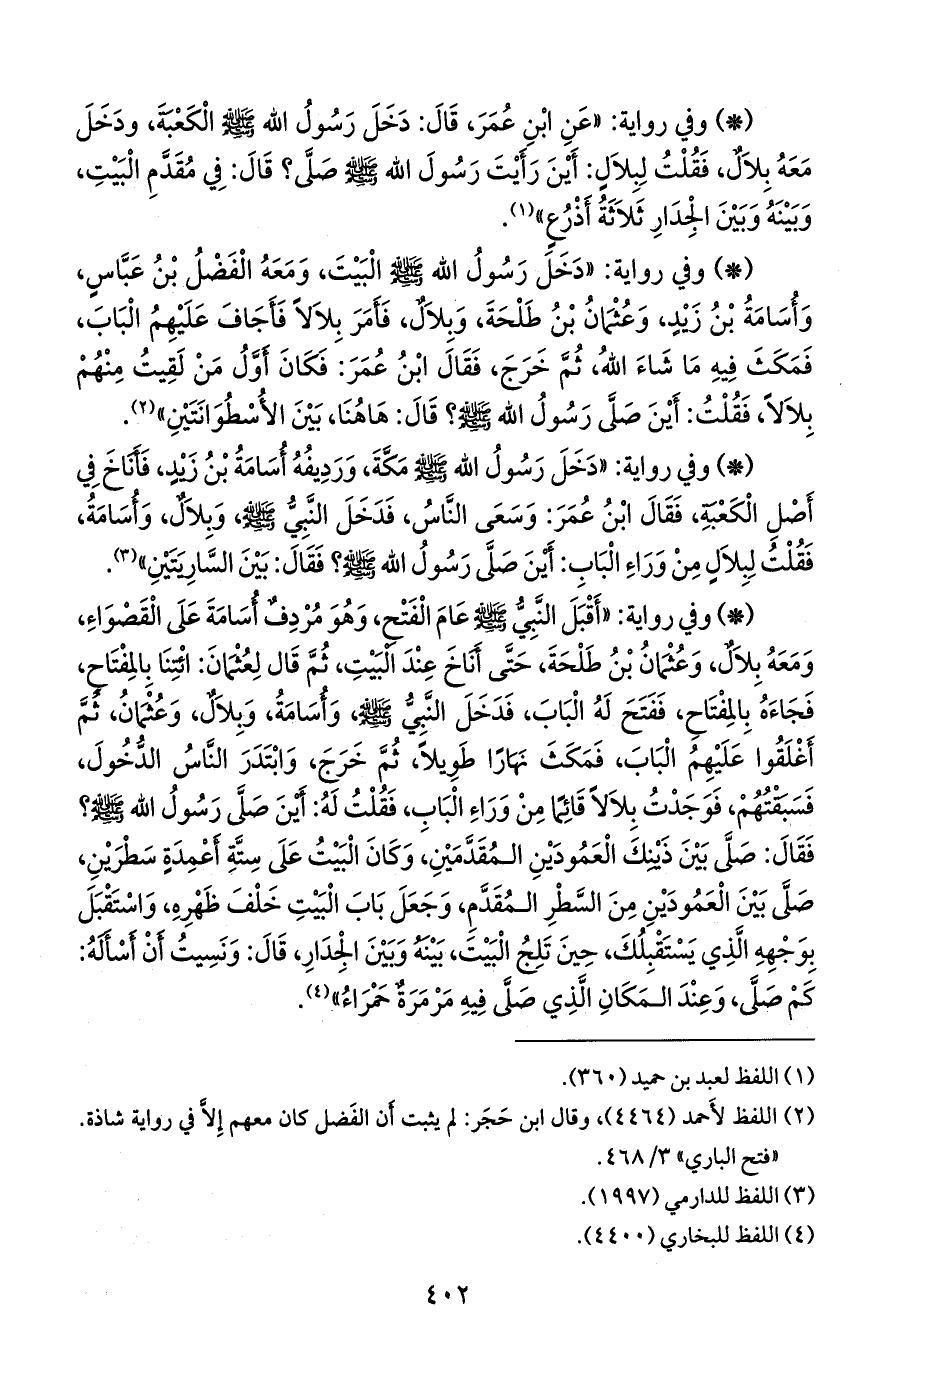 (*) وفي رواية: «عَنِ ابْنِ عُمَرَ، قَالَ: دَخَلَ رَسُولُ الله ﷺ الْكَعْبَةَ، ودَخَلَ
مَعَهُ بِلَالٌ، فَقُلْتُ لِبِلَالٍ: أَيْنَ رَأَيْتَ رَسُولَ الله ﷺ صَلَّى؟ قَالَ: فِي مُقَدَّمِ الْبَيْتِ،
وَبَيْنَهُ وَبَيْنَ الْجِدَارِ ثَلَاثَةُ أَذْرُعٍ»(١).
(*) وفي رواية: «دَخَلَ رَسُولُ الله ﷺ الْبَيْتَ، وَمَعَهُ الْفَضْلُ بْنُ عَبَّاسٍ،
وَأُسَامَةُ بْنُ زَيْدٍ، وَعُثْمَانُ بْنُ طَلْحَةَ، وَبِلَالٌ، فَأَمَرَ بِلَالاً فَأَجَافَ عَلَيْهِمُ الْبَابَ،
فَمَكَثَ فِيهِ مَا شَاءَ اللهُ، ثُمَّ خَرَجَ، فَقَالَ ابْنُ عُمَرَ: فَكَانَ أَوَّلُ مَنْ لَقِيتُ مِنْهُمْ
بِلَالاً، فَقُلْتُ: أَيْنَ صَلَّى رَسُولُ الله ﷺ؟ قَالَ: هَاهُنَا، بَيْنَ الأُسْطُوَانَتَيْنِ»(٢).
(*) وفي رواية: «دَخَلَ رَسُولُ الله ﷺ مَكَّةَ، وَرَدِيفُهُ أُسَامَةُ بْنُ زَيْدٍ، فَأَنَاخَ فِي
أَصْلِ الْكَعْبَةِ، فَقَالَ ابْنُ عُمَرَ: وَسَعَى النَّاسُ، فَدَخَلَ النَّبِيُّ ﷺ، وَبِلَالٌ، وَأُسَامَةُ،
فَقُلْتُ لِبِلَالٍ مِنْ وَرَاءِ الْبَابِ: أَيْنَ صَلَّى رَسُولُ الله ﷺ؟ فَقَالَ: بَيْنَ السَّارِيَتَيْنِ»(٣).
(*) وفي رواية: «أَقْبَلَ النَّبِيُّ ﷺ عَامَ الْفَتْحِ، وَهُوَ مُرْدِفٌ أُسَامَةَ عَلَى الْقَصْوَاءِ،
وَمَعَهُ بِلَالٌ، وَعُثْمَانُ بْنُ طَلْحَةَ، حَتَّى أَنَاخَ عِنْدَ الْبَيْتِ، ثُمَّ قَال لِعُثْمَانَ: ائْتِنَا بِالْمِفْتَاحِ،
فَجَاءَهُ بِالْمِفْتَاحِ، فَفَتَحَ لَهُ الْبَابَ، فَدَخَلَ النَّبِيُّ ﷺ، وَأُسَامَةُ، وَبِلَالٌ، وَعُثْمَانُ، ثُمَّ
أَغْلَقُوا عَلَيْهِمُ الْبَابَ، فَمَكَثَ نَهَارًا طَوِيلاً، ثُمَّ خَرَجَ، وَابْتَدَرَ النَّاسُ الدُّخُولَ،
فَسَبَقْتُهُمْ، فَوَجَدْتُ بِلَالاً قَائِمًا مِنْ وَرَاءِ الْبَابِ، فَقُلْتُ لَهُ: أَيْنَ صَلَّى رَسُولُ الله ﷺ؟
فَقَالَ: صَلَّى بَيْنَ ذَيْنِكَ الْعَمُودَيْنِ الـمُقَدَّمَيْنِ، وَكَانَ الْبَيْتُ عَلَى سِتَّةِ أَعْمِدَةٍ سَطْرَيْنِ،
صَلَّى بَيْنَ الْعَمُودَيْنِ مِنَ السَّطْرِ الـمُقَدَّمِ، وَجَعَلَ بَابَ الْبَيْتِ خَلْفَ ظَهْرِهِ، وَاسْتَقْبَلَ
بِوَجْهِهِ الَّذِي يَسْتَقْبِلُكَ، حِينَ تَلِجُ الْبَيْتَ، بَيْنَهُ وَبَيْنَ الْجِدَارِ، قَالَ: وَنَسِيتُ أَنْ أَسْأَلَهُ:
كَمْ صَلَّى، وَعِنْدَ الـمَكَانِ الَّذِي صَلَّى فِيهِ مَرْمَرَةٌ حَمْرَاءُ»(٤).
(١) اللفظ لعبد بن حميد (٣٦٠).
(٢) اللفظ لأَحمد (٤٤٦٤)، وقال ابن حَجَر: لم يثبت أَن الفَضل كان معهم إِلاَّ في رواية شاذة.
«فتح الباري» ٣/ ٤٦٨.
(٣) اللفظ للدارمي (١٩٩٧).
(٤) اللفظ للبخاري (٤٤٠٠).
٤٠٢